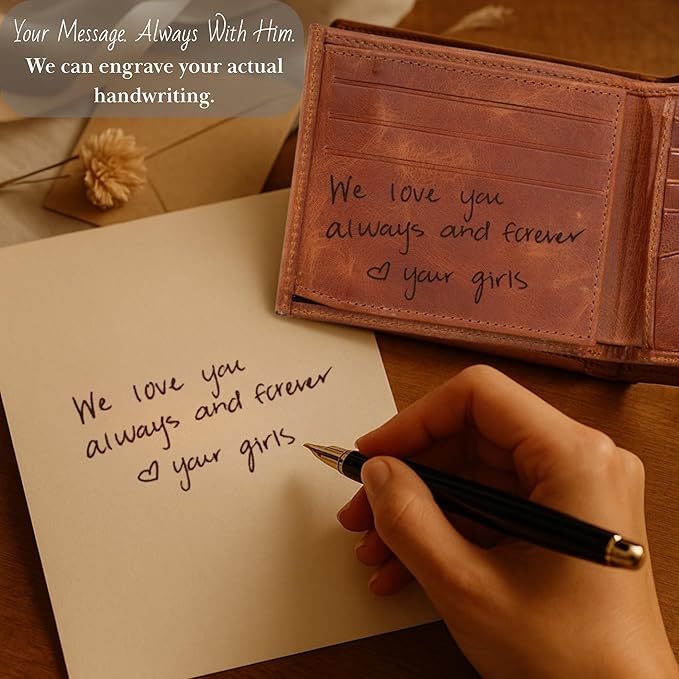 Your Message. Always With Him.
We can engrave your actual
handwriting.
We love you
always and forever
♡ your girls
We love you
always and forever
♡ your girls